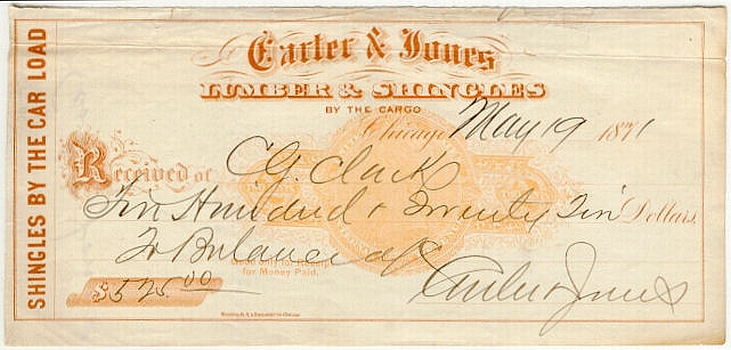 SHINGLES BY THE CAR LOAD
Carter & Jones
LUMBER & SHINGLES
BY THE CARGO
Chicago May 19 1871
Received of C G. Clark
Five Hundred & Twenty Five Dollars
To Balance a/c
Good only for Receipt
for Money Paid.
$525.00
Carter & Jones